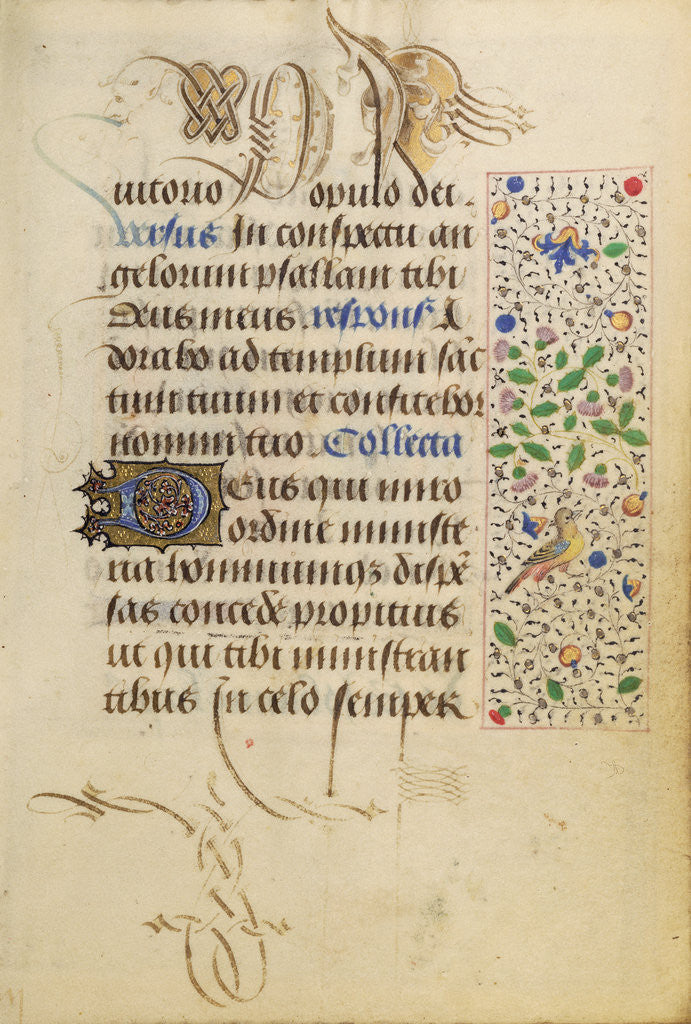 iutorio populo dei.
versus In conspectu an
gelorum psallam tibi
Deus meus. respons' A
dorabo ad templum sāc
tum tuum et confitebor
nomini tuo. Collecta
Deus qui miro
ordine ministe
ria hominumqz dispē
sas concede propitius
ut qui tibi ministran
tibus In celo semper